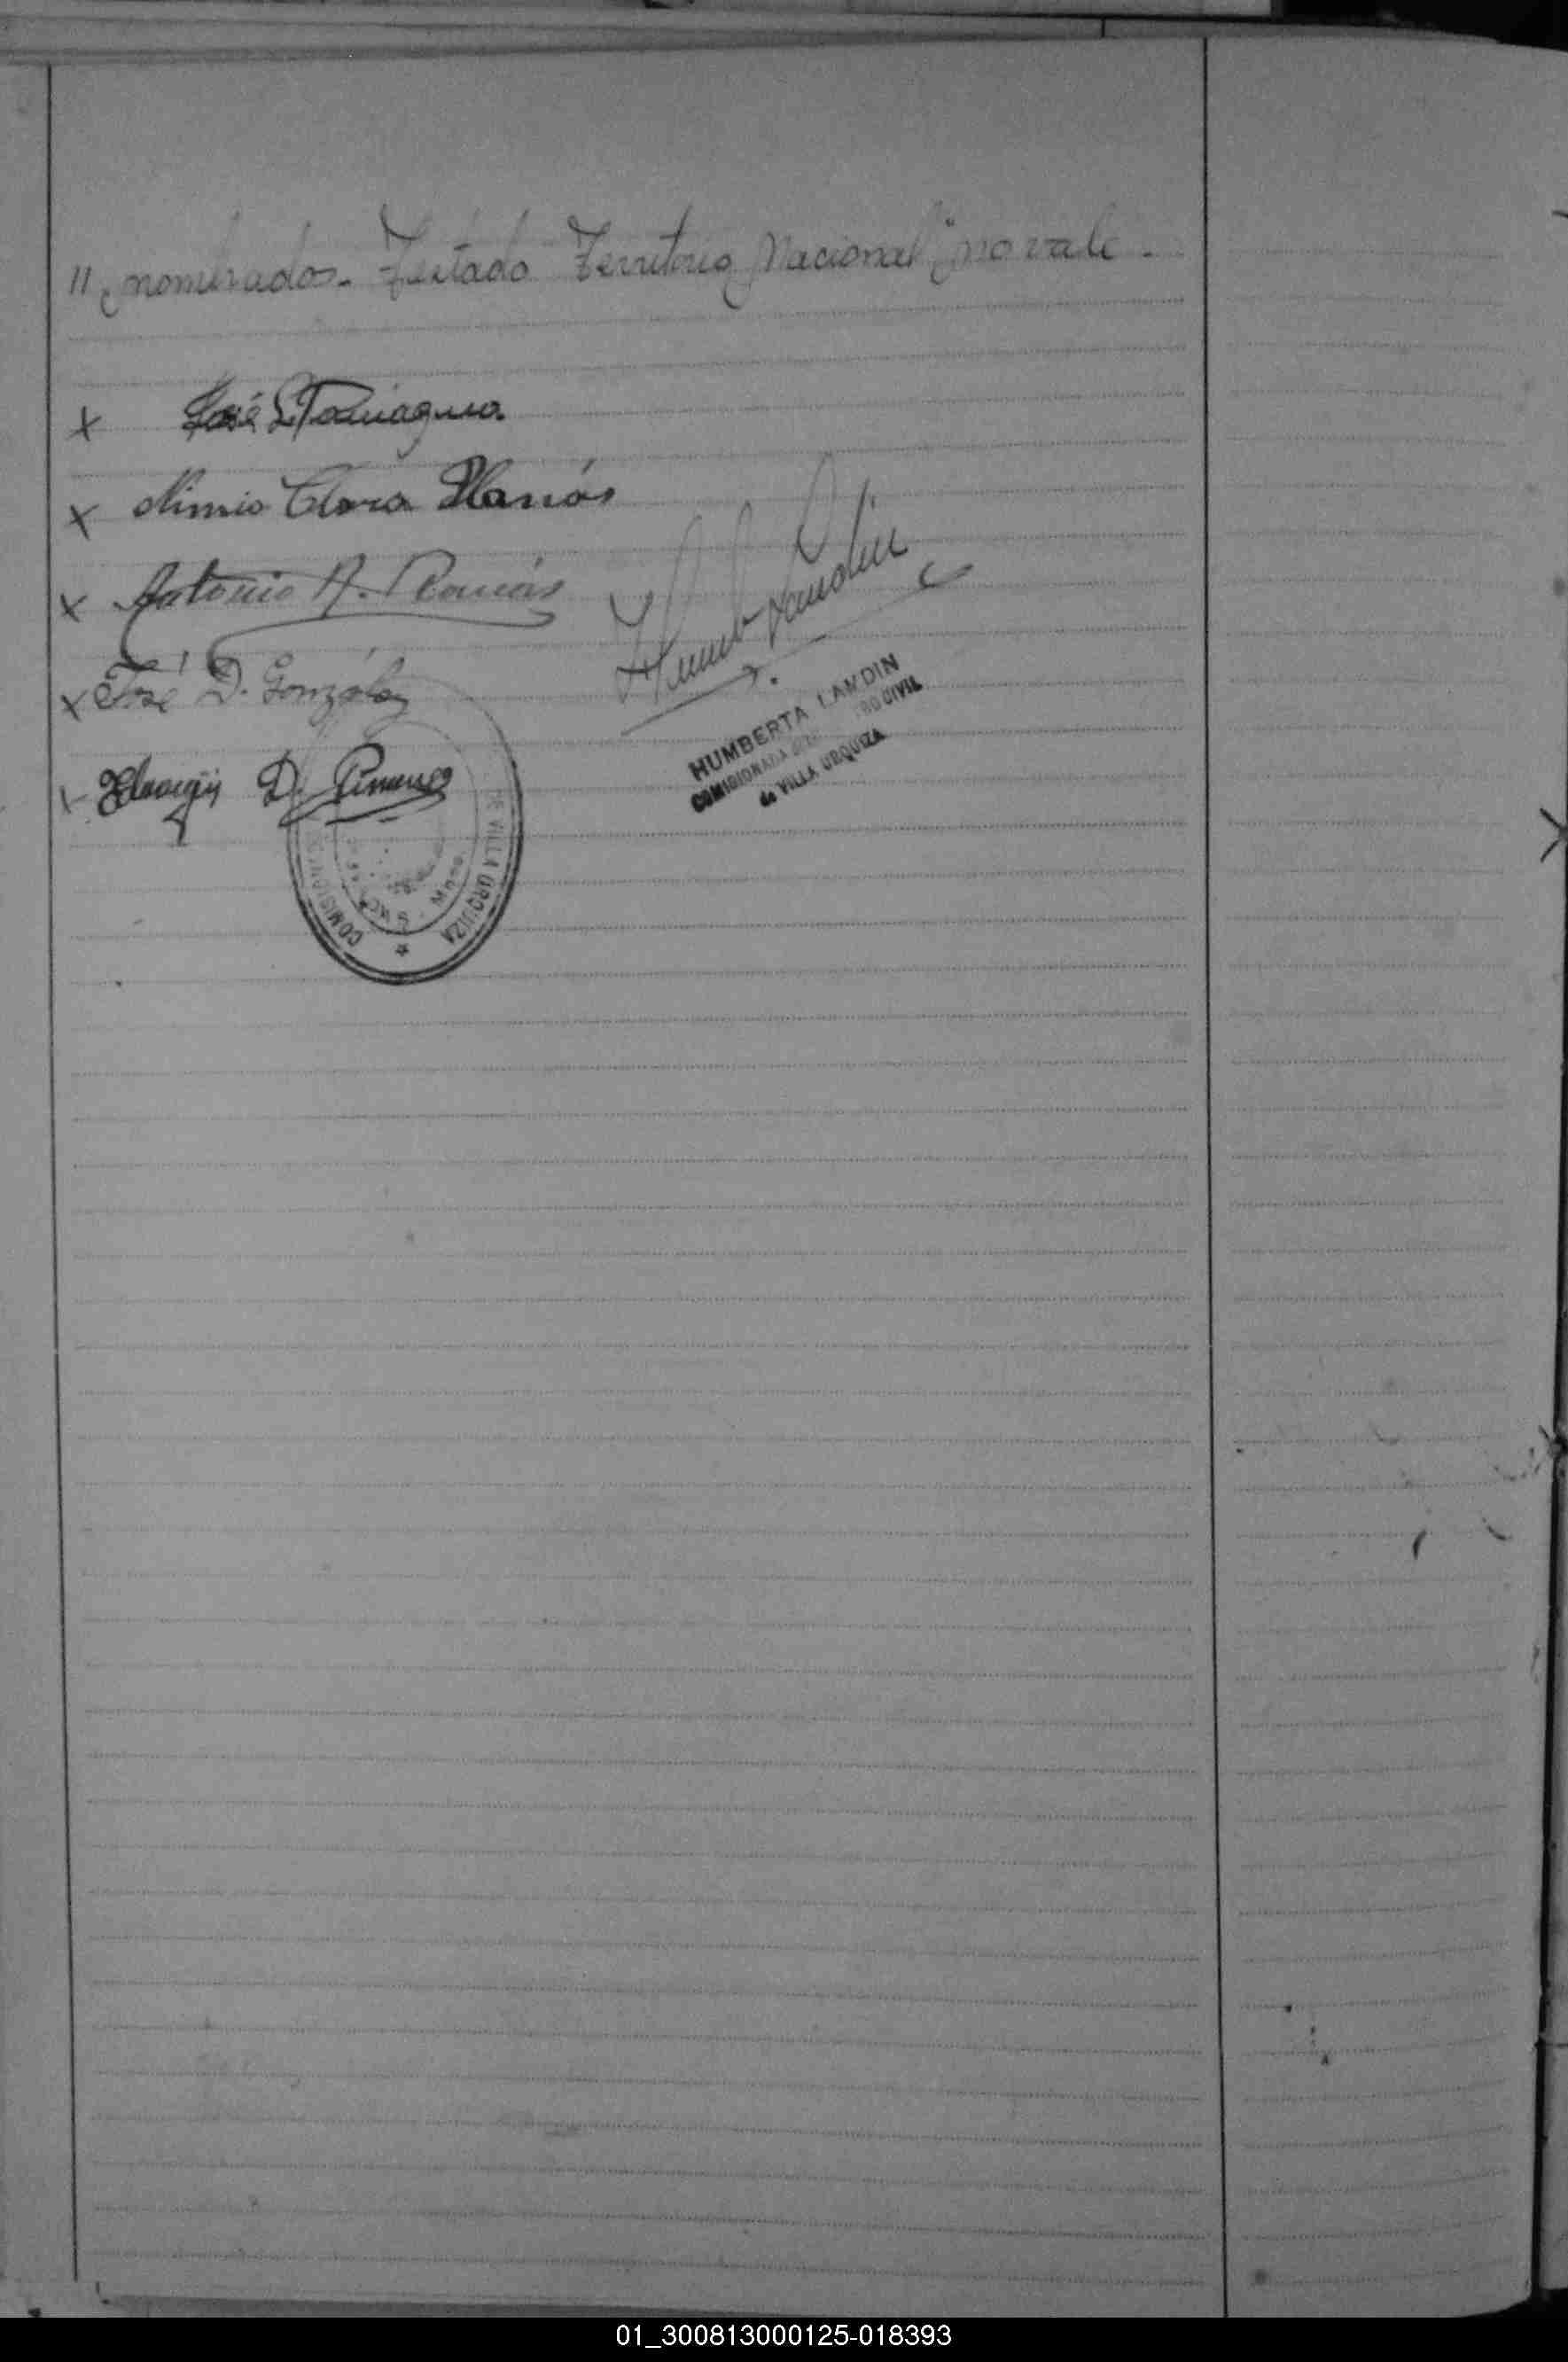 " nombrados. Testado "Territorio Nacional" no vale.
x José L Paniagua
x Nimia Clara Llanos
x Antonio A. Ramos
x José D. González
Humb Landin
HUMBERTA LANDIN
COMISIONADA CIVIL
de VILLA URQUIZA
D. Gimenez
COMISION DE VILLA URQUIZA
01_300813000125-018393